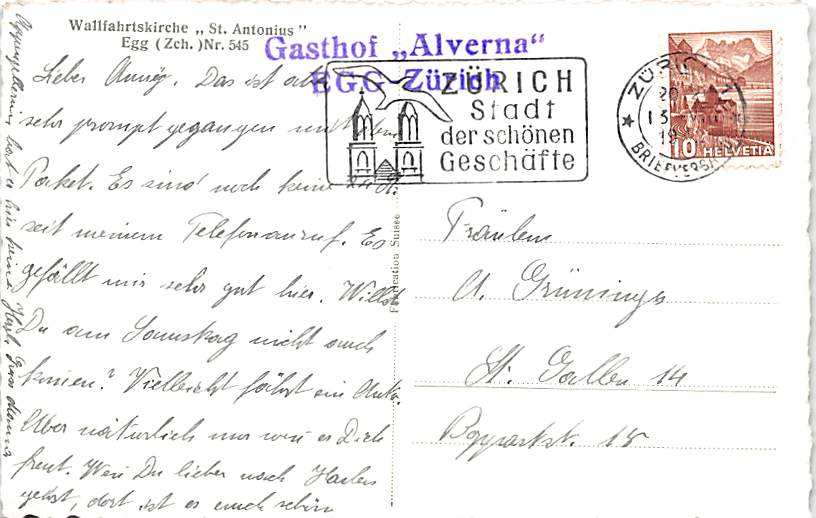 Wallfahrtskirche „ St. Antonius "
Egg ( Zch. ) Nr. 545
Gasthof „Alverna"
EGG - Zürich
ZÜRICH
Stadt
der schönen
Geschäfte
ZÜRICH
BRIEFVERS
10 HELVETIA
Lieber Das ist
sehr prompt gegangen mit dem
Paket. Es sind noch keine 24 St.
seit meinem Telefonanruf. Es
gefällt mir sehr gut hier. Willst
Du am Samstag nicht auch
kommen? Vielleicht fährt ein Auto.
Aber natürlich nur wenn es Dich
freut. Wenn Du lieber nach
gehst, dort ist es auch schön
hat es hier keine Herzl. Gruss
Fabrication Suisse
Fräulein
A. Grüninger
St. Gallen 14
18